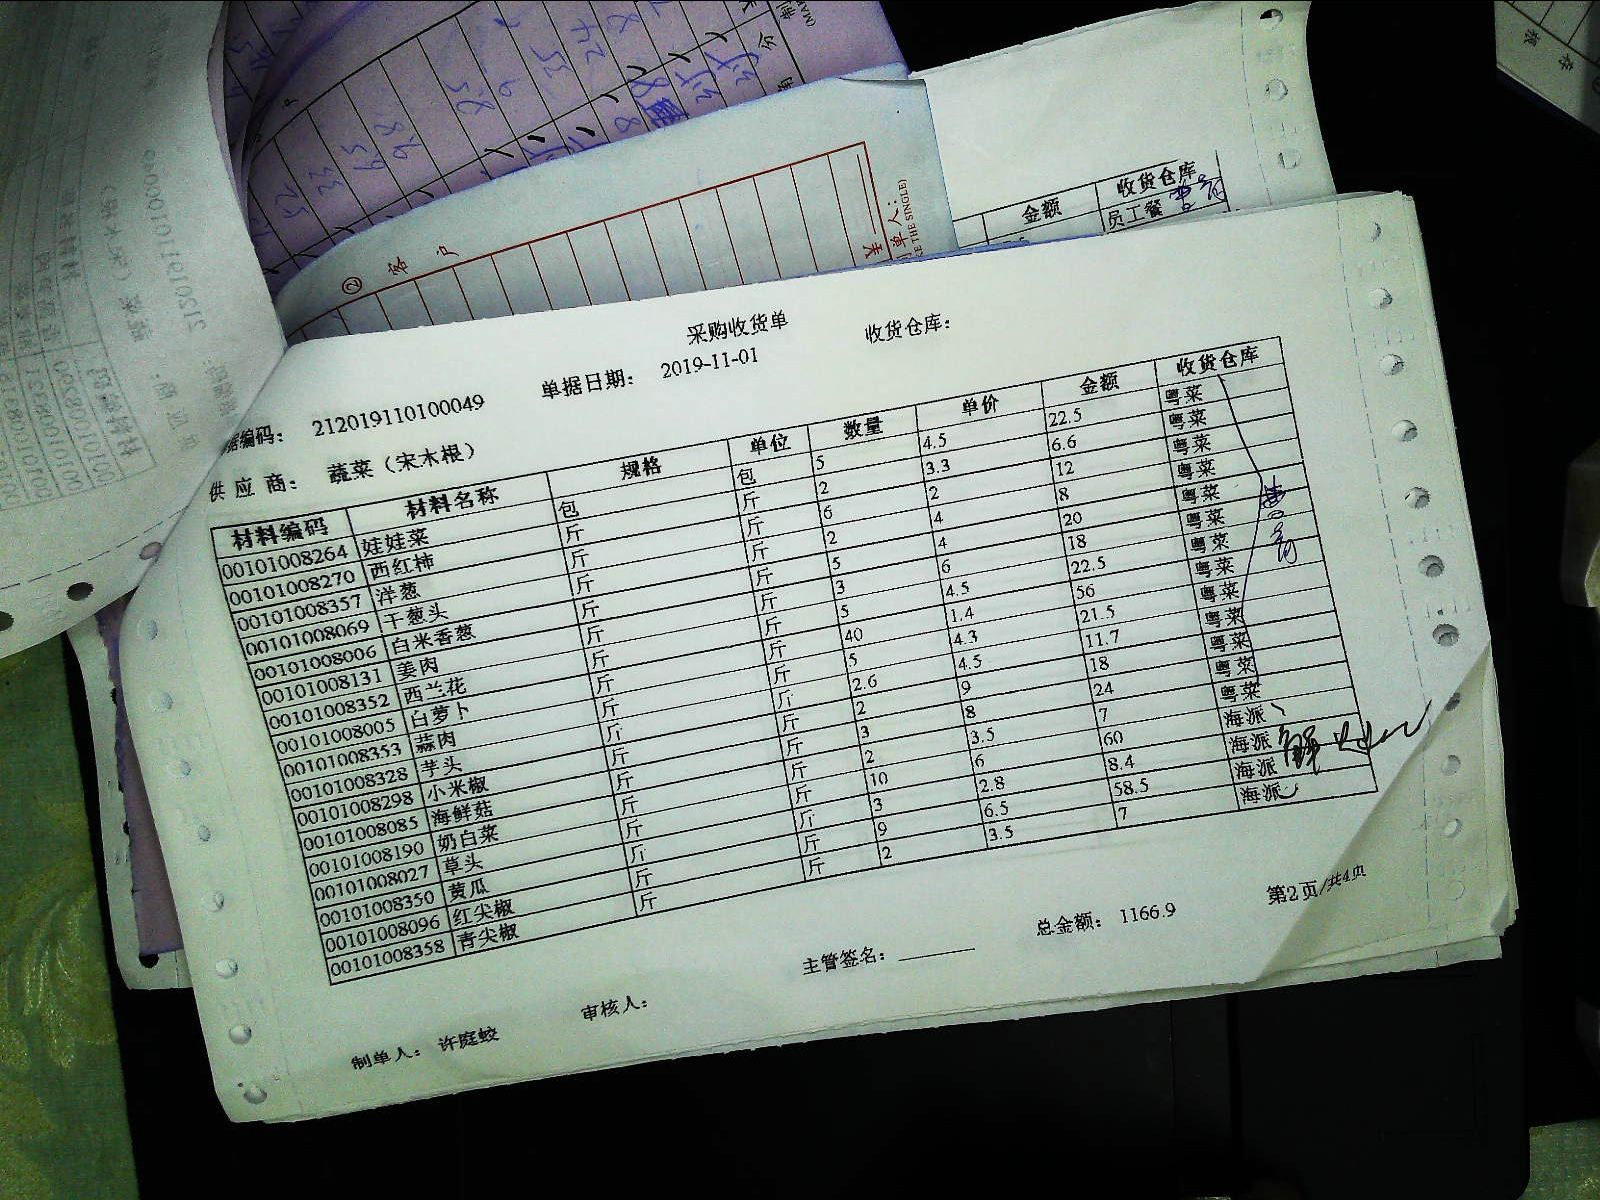 金额 收货仓库
员工餐
② 客 户
采购收货单
据编码: 212019110100049 单据日期: 2019-11-01 收货仓库:
供应商: 蔬菜（宋木根）
材料编码 材料名称 规格 单位 数量 单价 金额 收货仓库
00101008264 娃娃菜 包 包 5 4.5 22.5 粤菜
00101008270 西红柿 斤 斤 2 3.3 6.6 粤菜
00101008357 洋葱 斤 斤 6 2 12 粤菜
00101008069 干葱头 斤 斤 2 4 8 粤菜
00101008006 白米香葱 斤 斤 5 4 20 粤菜
00101008131 姜肉 斤 斤 3 6 18 粤菜
00101008352 西兰花 斤 斤 5 4.5 22.5 粤菜
00101008005 白萝卜 斤 斤 40 1.4 56 粤菜
00101008353 蒜肉 斤 斤 5 4.3 21.5 粤菜
00101008328 芋头 斤 斤 2.6 4.5 11.7 粤菜
00101008298 小米椒 斤 斤 2 9 18 粤菜
00101008085 海鲜菇 斤 斤 3 8 24 粤菜
00101008190 奶白菜 斤 斤 2 3.5 7 粤菜
00101008027 草头 斤 斤 10 6 60 海派
00101008350 黄瓜 斤 斤 3 2.8 8.4 海派
00101008096 红尖椒 斤 斤 9 6.5 58.5 海派
00101008358 青尖椒 斤 斤 2 3.5 7 海派
制单人: 许庭蛟 审核人: 主管签名: 总金额: 1166.9 第2页/共4页